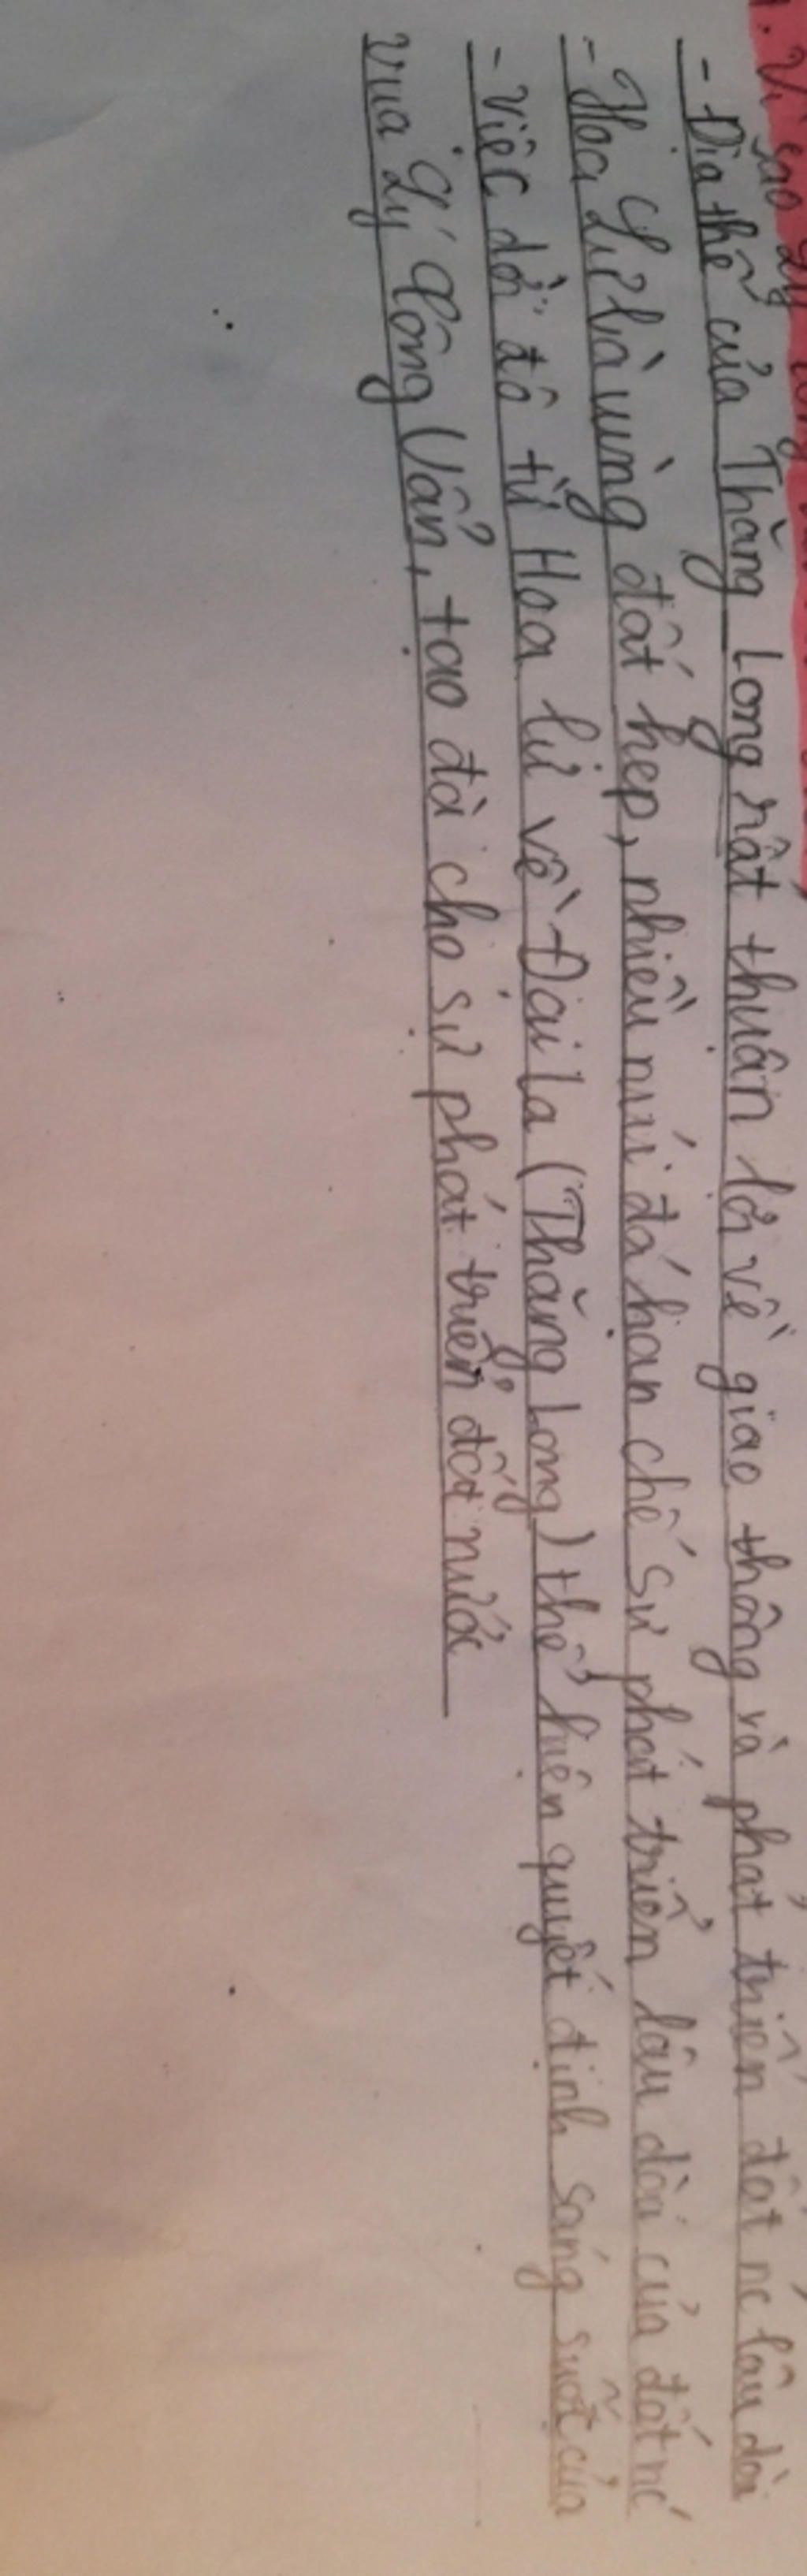 - Địa thế của Thăng Long rất thuân lợi về giao thông và phát triển đất nc lâu dài
- Hoa Lư là vùng đất hẹp, nhiều núi đá hạn chế sự phát triển lâu dài của đất nc
- Việc dời đô từ Hoa lư về Đại La (Thăng Long) thể hiện quyết định sáng suốt của
vua Lý Công Uẩn, tạo đà cho sự phát triển đất nước